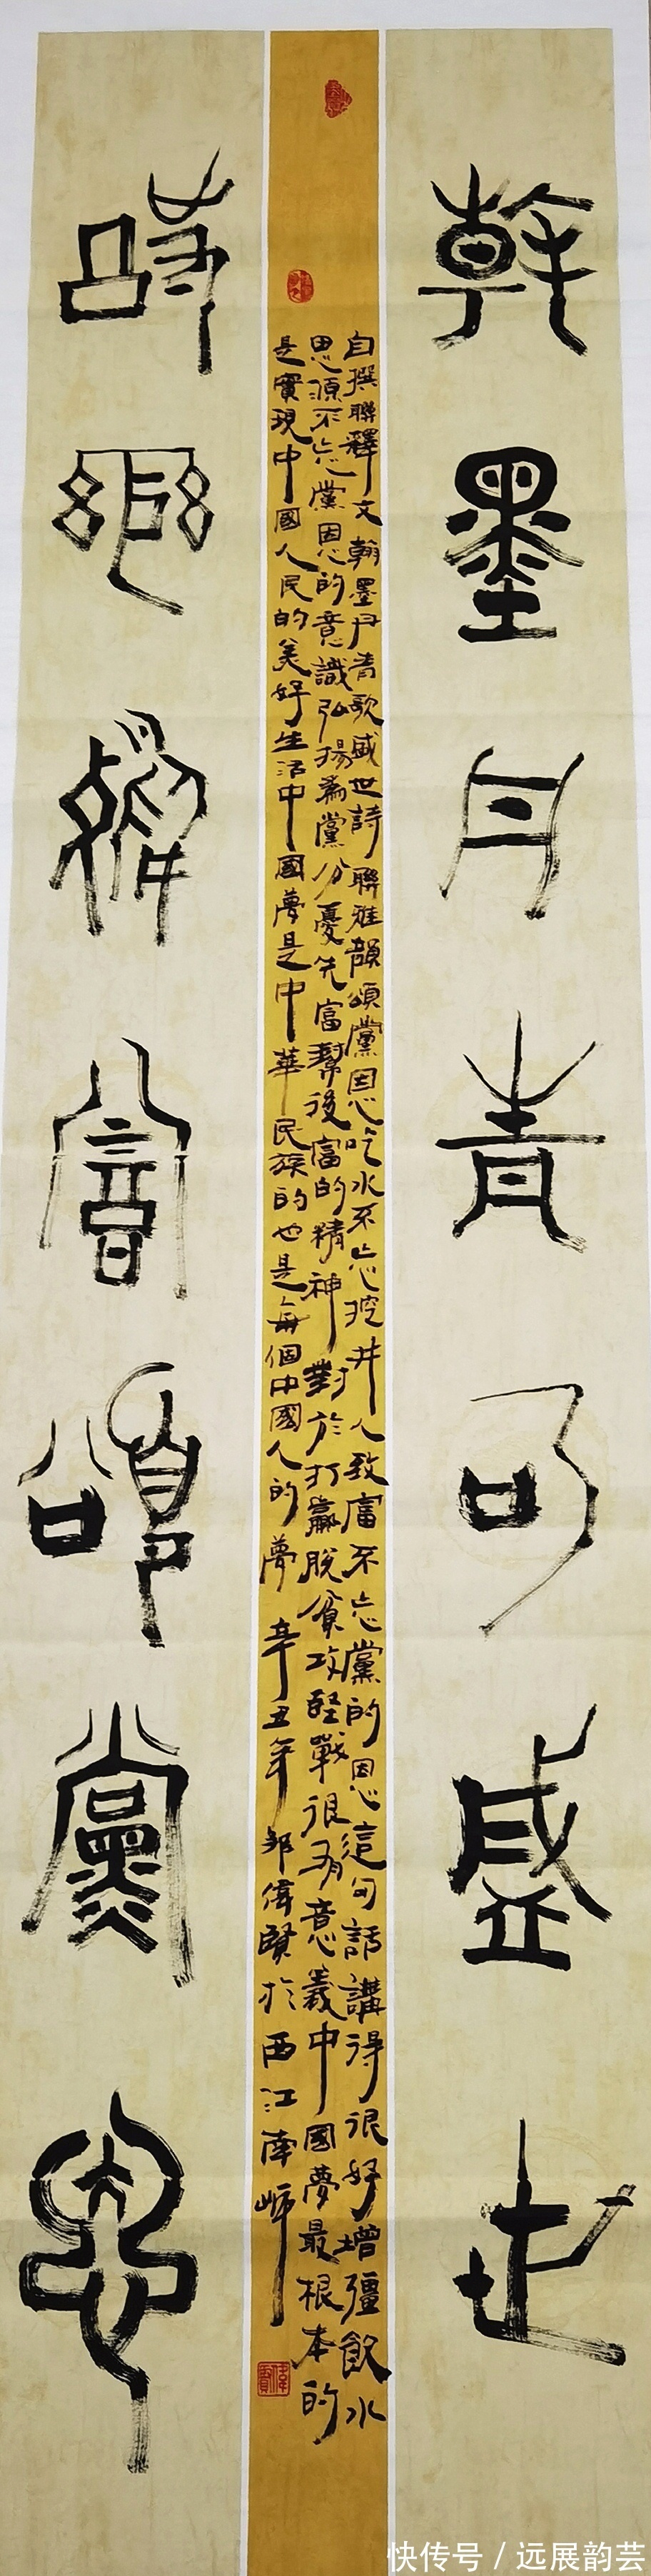 翰墨丹青歌盛世
自撰聯釋文翰墨丹青歌盛世詩聯雅韻頌黨恩吃水不忘挖井人致富不忘黨的恩這句話講得很好增彊飲水
思源不忘黨恩的意識弘揚爲黨分憂先富幫後富的精神對於打贏脫貧攻堅戰很有意義中國夢最根本的
是實現中國人民的美好生活中國夢是中華民族的也是每個中國人的夢 辛丑年鄒偉賢於西江南岸
偉賢
詩聯雅韻頌黨恩
快传号/远展韵芸